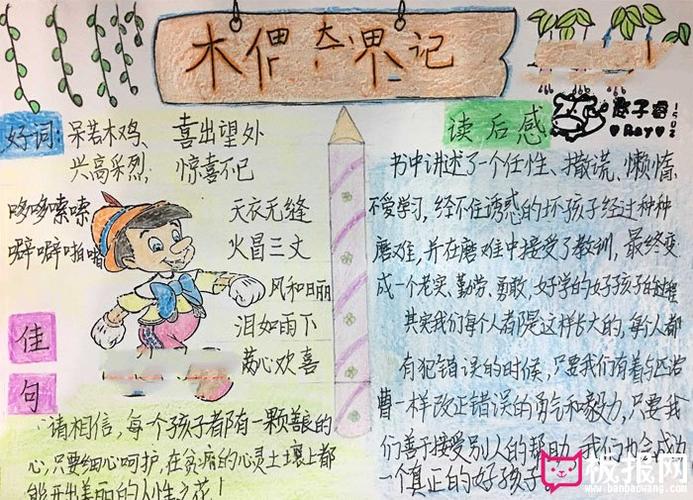 木偶奇遇记
好词: 呆若木鸡、 喜出望外
兴高采烈 惊喜不已
哆哆嗦嗦 天衣无缝
火冒三丈
风和日丽
泪如雨下
满心欢喜
佳句
请相信，每个孩子都有一颗善良的
心，只要细心呵护，在贫瘠的心灵土壤上都
能开出美丽的人性之花！
读后感
子睿
Ray
1502
书中讲述了一个任性、撒谎、懒惰、
不爱学习，经不住诱惑的坏孩子经过种种
磨难，并在磨难中接受了教训，最终变
成一个老实、勤劳、勇敢，好学的好孩子的过程
其实我们每个人都是这样长大的，每个人都
有犯错误的时候，只要我们有着与匹诺
曹一样改正错误的勇气和毅力，只要我
们善于接受别人的帮助，我们也会成为
一个真正的好孩子
板报网
www.banbaowang.com